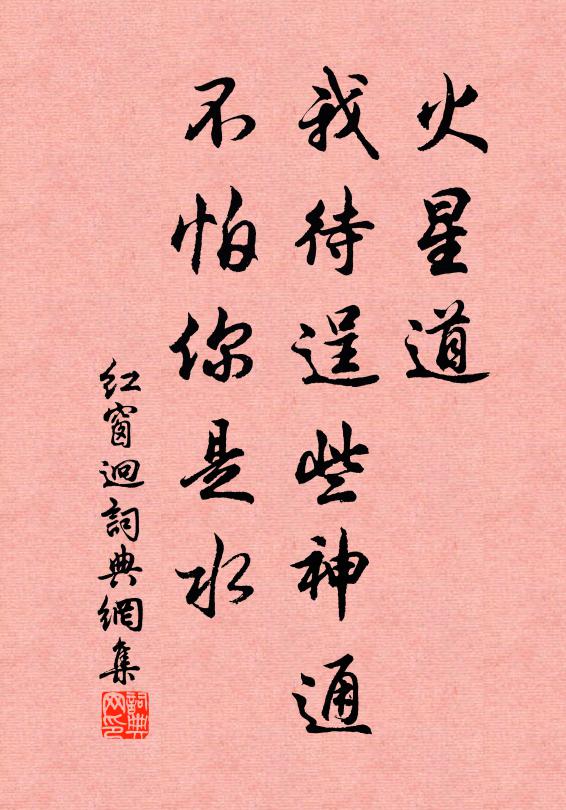 火星道
我待逞些神通
不怕你是水
紅窗迥詞典網集
詞典
网印